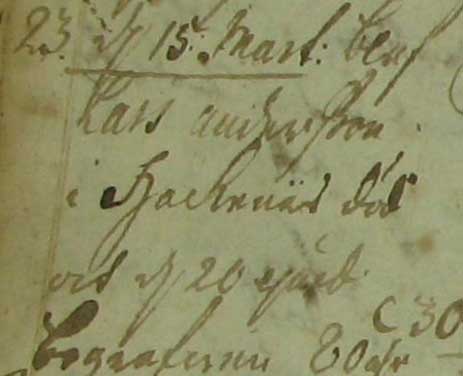 23. d 15. Mart: blef
Lars andersson
i Hackenäs död
och d 20 ejusd:
Begrafwen 80 åhr
C 30